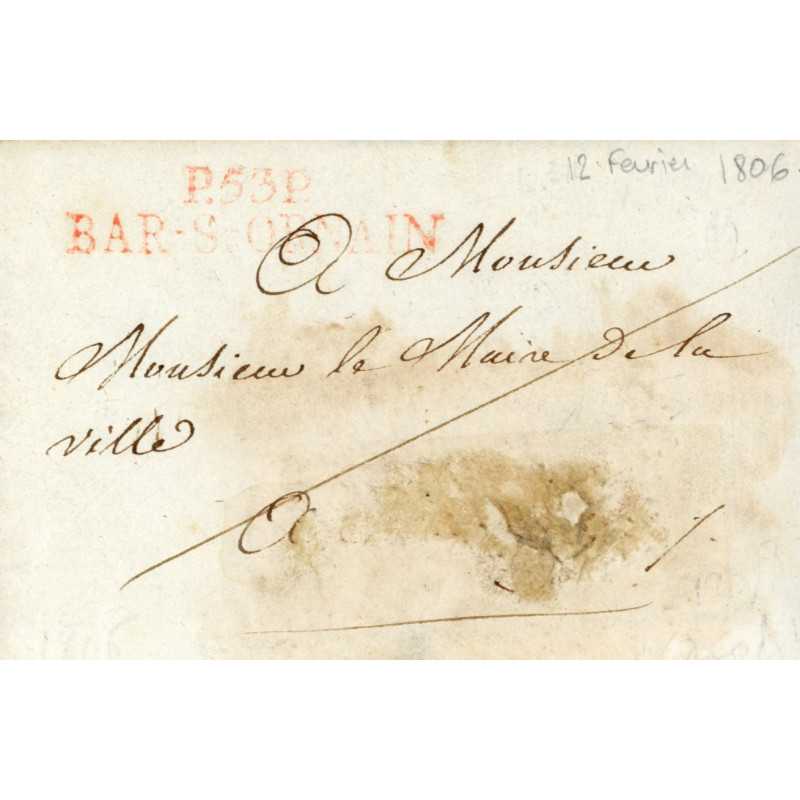 12 Fevrier 1806.
P.53.P.
BAR-S-ORNAIN
A Monsieur
Monsieur le Maire de la
ville
A